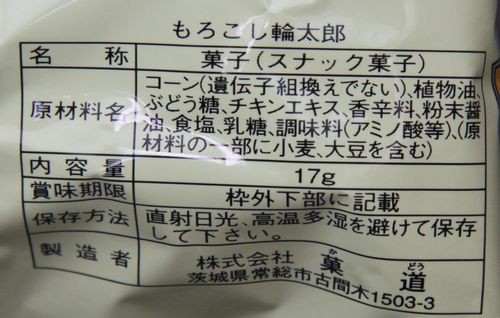 もろこし輪太郎
名 称 菓子(スナック菓子)
原材料名 コーン(遺伝子組換えでない)、植物油、
ぶどう糖、チキンエキス、香辛料、粉末醤
油、食塩、乳糖、調味料(アミノ酸等)、(原
材料の一部に小麦、大豆を含む)
内容量 17g
賞味期限 枠外下部に記載
保存方法 直射日光、高温多湿を避けて保存
して下さい。
製造者 株式会社 菓道
か どう
茨城県常総市古間木1503-3